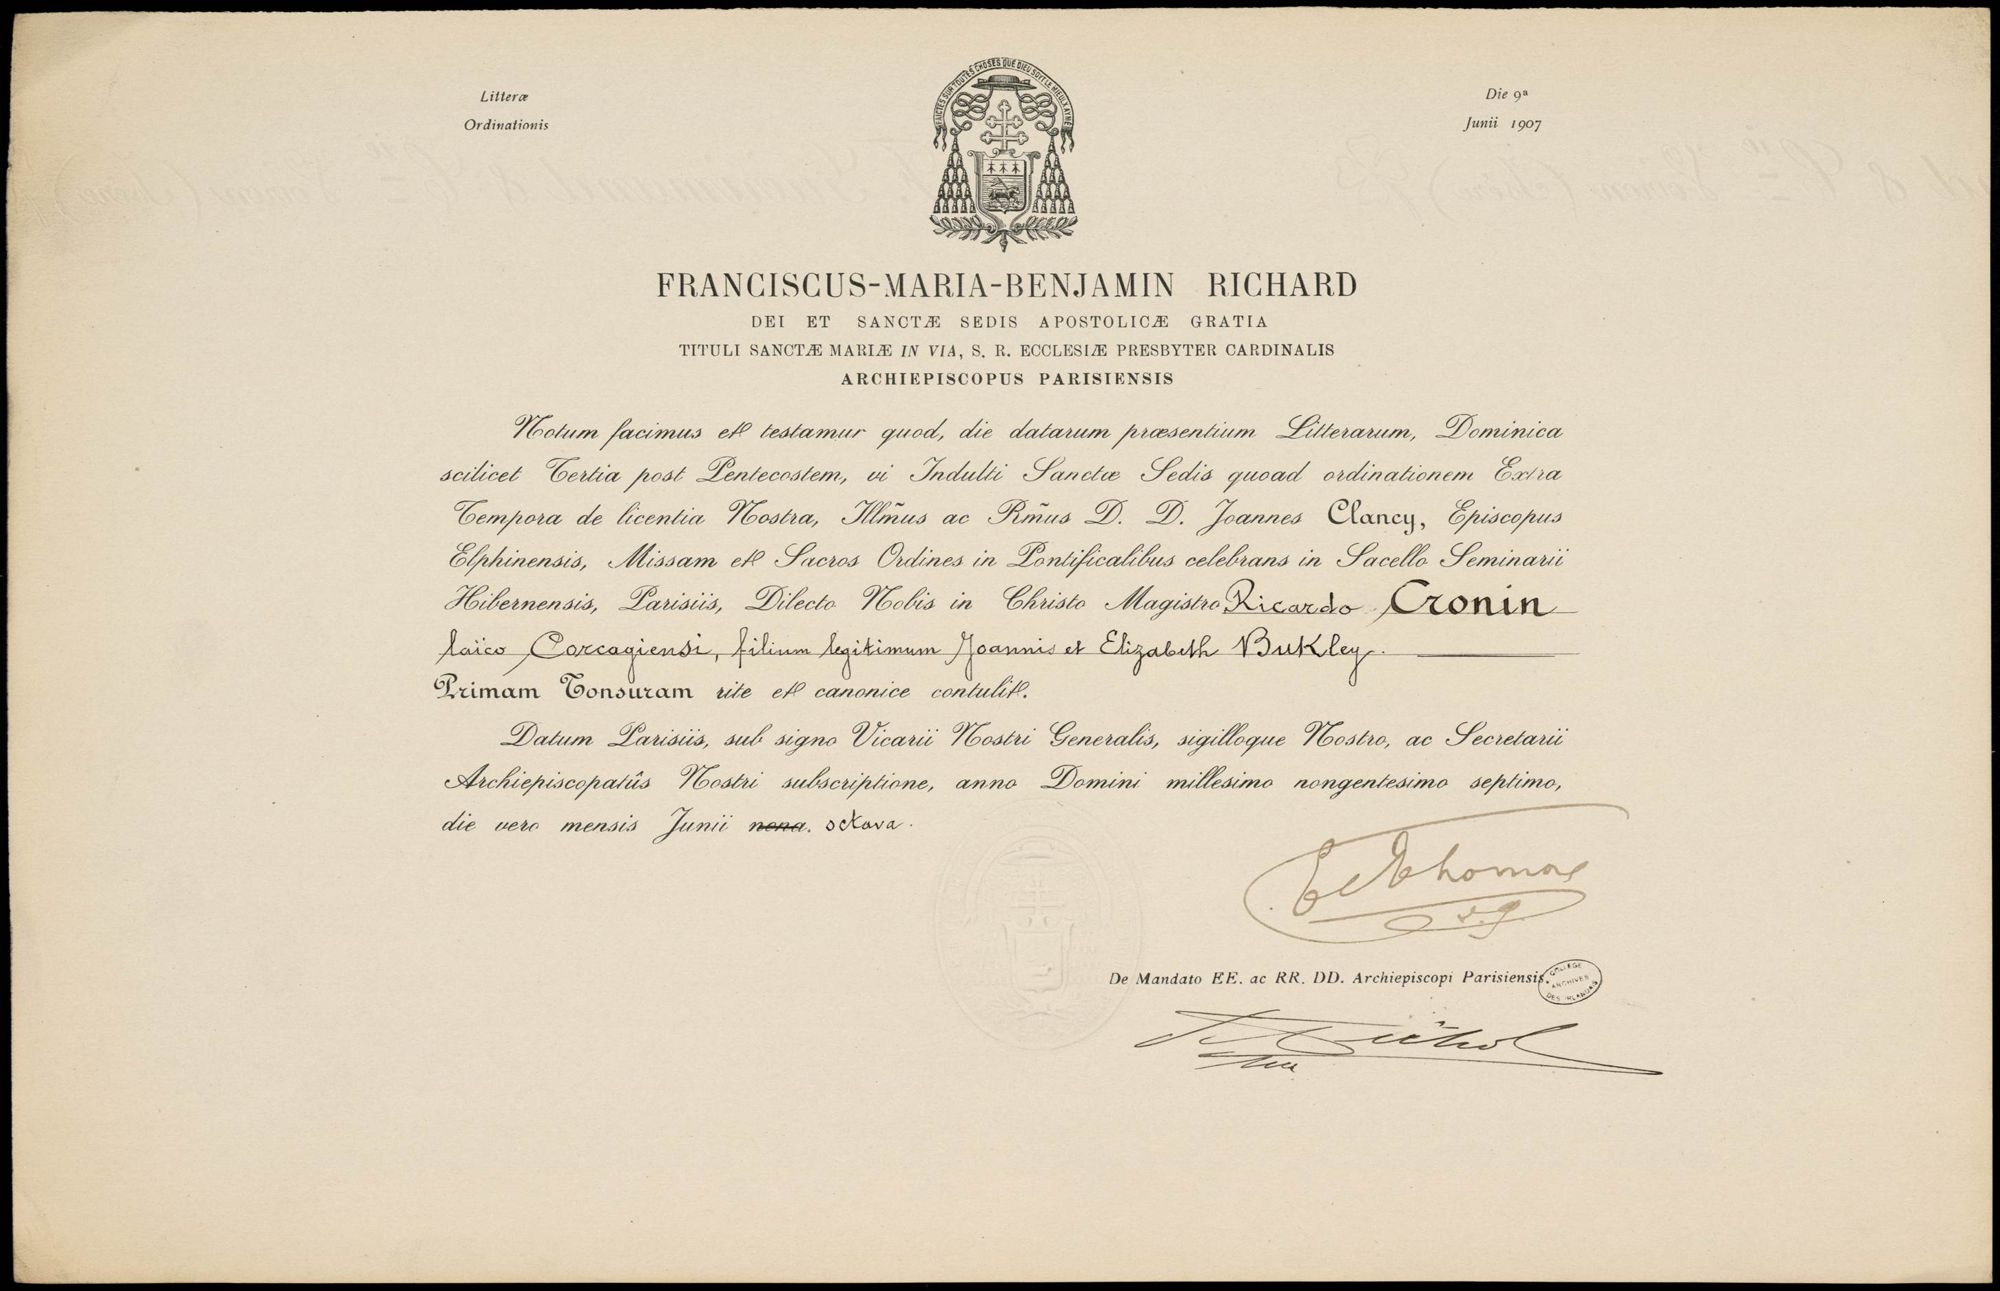 FAICTES SUR TOUTES CHOSES QUE DIEU SOIT LE MIEULX AYMÉ
Litteræ
Ordinationis
Die 9ª
Junii 1907
FRANCISCUS-MARIA-BENJAMIN RICHARD
DEI ET SANCTÆ SEDIS APOSTOLICÆ GRATIA
TITULI SANCTÆ MARIÆ IN VIA, S. R. ECCLESIÆ PRESBYTER CARDINALIS
ARCHIEPISCOPUS PARISIENSIS
Notum facimus et testamur quod, die datarum præsentium Litterarum, Dominica
scilicet Tertia post Pentecostem, vi Indulti Sanctæ Sedis quoad ordinationem Extra
Tempora de licentia Nostra, Illm̃us ac Rm̃us D. D. Joannes Clancy, Episcopus
Elphinensis, Missam et Sacros Ordines in Pontificalibus celebrans in Sacello Seminarii
Hibernensis, Parisiis, Dilecto Nobis in Christo Magistro Ricardo Cronin
laïco Corcagiensi, filium legitimum Joannis et Elizabeth Bukley.
Primam Tonsuram rite et canonice contulit.
Datum Parisiis, sub signo Vicarii Nostri Generalis, sigilloque Nostro, ac Secretarii
Archiepiscopatûs Nostri subscriptione, anno Domini millesimo nongentesimo septimo,
die vero mensis Junii nona. octava.
Thomas
v. g
De Mandato EE. ac RR. DD. Archiepiscopi Parisiensis.
COLLEGE
ARCHIVES
DES IRLANDAIS